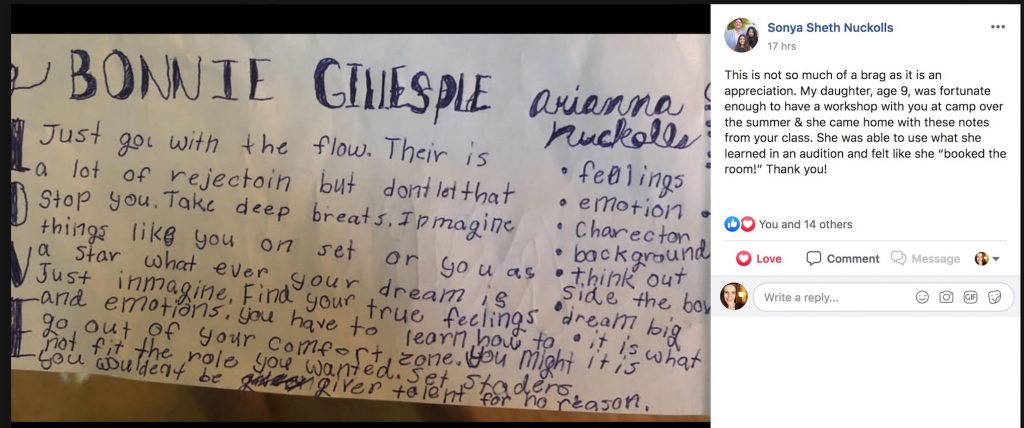 BONNIE GILLESPIE
arianna
nuckolls
Just goi with the flow. Their is
a lot of rejectoin but dont let that
Stop you. Take deep breats. Ipmagine
things like you on set or you as
a star what ever your dream is
Just inmagine. Find your true feelings
and emotions. you have to learn how to
go out of your comfort zone. You might
not fit the role you wanted. Set staders
you wouldent be giver talent for no reason.
• feelings
• emotion
• Charector
• background
• think out
side the box
• dream big
• it is what
it is
Sonya Sheth Nuckolls
17 hrs
This is not so much of a brag as it is an
appreciation. My daughter, age 9, was fortunate
enough to have a workshop with you at camp over
the summer & she came home with these notes
from your class. She was able to use what she
learned in an audition and felt like she “booked the
room!” Thank you!
You and 14 others
Love Comment Message
Write a reply...
GIF